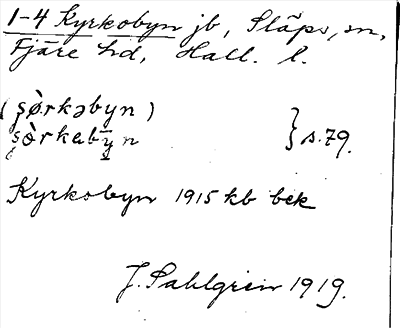 1-4 Kyrkobyn jb, Släps, sn,
Fjäre hd, Hall. l.
(şø̀rkəbyn)
şø̀rkabȳn } s. 79.
Kyrkobyn 1915 kb bek
J. Sahlgren 1919.